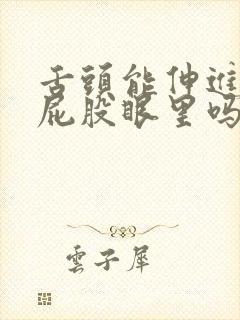 舌頭能伸進
屁股眼里吗
雲子犀